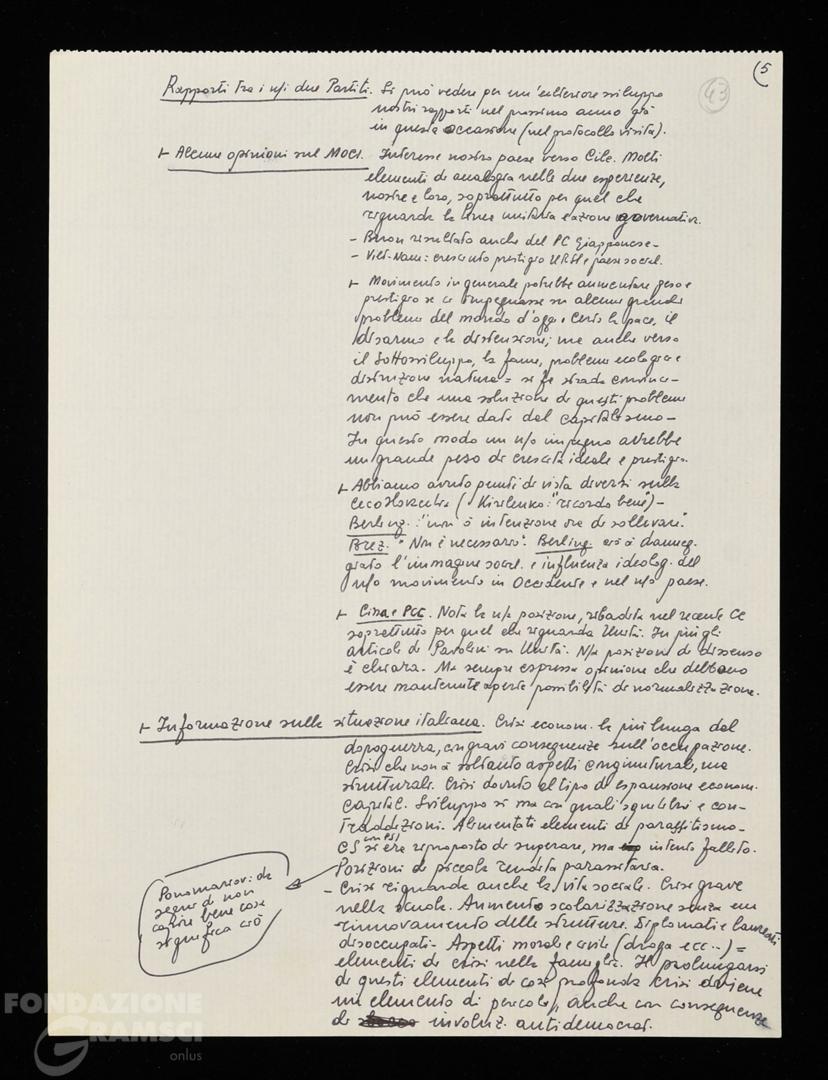 (5
43
Rapporti tra i n/i due Partiti. Si può vedere per un'ulteriore sviluppo
nostri rapporti nel prossimo anno già
in questa occasione (nel protocollo visita).
+ Alcune opinioni sul MOCI. Interesse nostro paese verso Cile. Molti
elementi di analogia nelle due esperienze,
nostre e loro, soprattutto per quel che
riguarda la linea unitaria e azione governativa.
- Buon risultato anche del PC Giapponese -
- Viet-Nam: crescente prestigio URSS e paesi social.
+ Movimento in generale potrebbe aumentare peso e
prestigio se ci impegnasse su alcuni grandi
problemi del mondo d'oggi. Certo la pace, il
disarmo e la distensione; ma anche verso
il sottosviluppo, la fame, problemi ecologici e
distruzione natura = si fa strada convinci-
mento che una soluzione di questi problemi
non può essere data dal capitalismo -
In questo modo un n/o impegno avrebbe
un grande peso di crescita ideale e prestigio.
+ Abbiamo avuto punti di vista diversi sulla
Cecoslovacchia (Kirilenko: "ricordo bene") -
Berling.: "non ò intenzione ora di sollevare".
Brez. "Non è necessario". Berling. ciò à danneg.
giato l'immagine social. e influenza ideolog. del
n/o movimento in Occidente e nel n/o paese.
+ Cina e PCC. Nota la n/a posizione, ribadita nel recente CC
soprattutto per quel che riguarda Unità. In più gli
articoli di Pavolini su Unità. N/a posizione di dissenso
è chiara. Ma sempre espressa opinione che debbano
essere mantenute aperte possibilità di normalizzazione.
+ Informazione sulla situazione italiana. Crisi econom. la più lunga dal
dopoguerra, con gravi conseguenze sull'occupazione.
Crisi che non à soltanto aspetti congiunturali, ma
strutturali. Crisi dovuta al tipo di espansione econom.
capital. Sviluppo sì ma con quali squilibri e con-
traddizioni. Alimentati elementi di parassitismo -
CS con PSI si era riproposto di superare, ma intento fallito.
Posizioni di piccola rendita parassitaria.
- Crisi riguarda anche la vita sociale. Crisi grave
nella scuola. Aumento scolarizzazione senza un
rinnovamento delle strutture. Diplomati e laureati
disoccupati - Aspetti morali e civili (droga ecc..) =
elementi di crisi nella famiglia. Il prolungarsi
di questi elementi di così profonda crisi diviene
un elemento di pericolo, anche con conseguenze
di involuz. antidemocrat.
Ponomariov: da
segni di non
capire bene cosa
significa ciò
FONDAZIONE
GRAMSCI
onlus